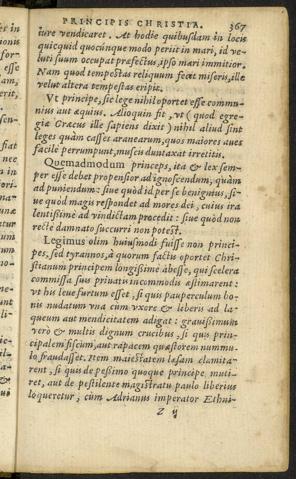 PRINCIPIS CHRISTIA. 367
iure vendicaret. At hodie quibusdam in locis
quicquid quocúnque modo periit in mari, id ve-
luti suum occupat præfectus, ipso mari immitior.
Nam quod tempestas reliquum fecit miseris, ille
velut altera tempestas eripit.
Vt principe, sic lege nihil oportet esse commu-
nius aut æquius. Alioquin fit, vt (quod egre-
gie Græcus ille sapiens dixit) nihil aliud sint
leges quàm casses aranearum, quos maiores aues
facile perrumpunt, muscis duntaxat irretitis.
Quemadmodum princeps, ita & lex sem-
per esse debet propensior ad ignoscendum, quàm
ad puniendum: siue quòd id per se benignius, si-
ue quòd magis respondet ad mores dei, cuius ira
lentissimè ad vindictam procedit: siue quòd non
rectè damnato succurri non potest.
Legimus olim huiusmodi fuisse non princi-
pes, sed tyrannos, à quorum factis oportet Chri-
stianum principem longissimè abesse, qui scelera
commissa suis priuatis incommodis æstimarent:
vt his leue furtum esset, si quis pauperculum bo-
nis nudatum vna cum vxore & liberis ad la-
queum aut mendicitatem adigat: grauissimum
verò & multis dignum crucibus, si quis prin-
cipalem fiscum, aut rapacem quæstorem nummu-
lo fraudasset. Item maiestatem læsam clamita-
rent, si quis de pessimo quoque principe muti-
ret, aut de pestilente magistratu paulo liberius
loqueretur, cùm Adrianus imperator Ethni-
Z ij